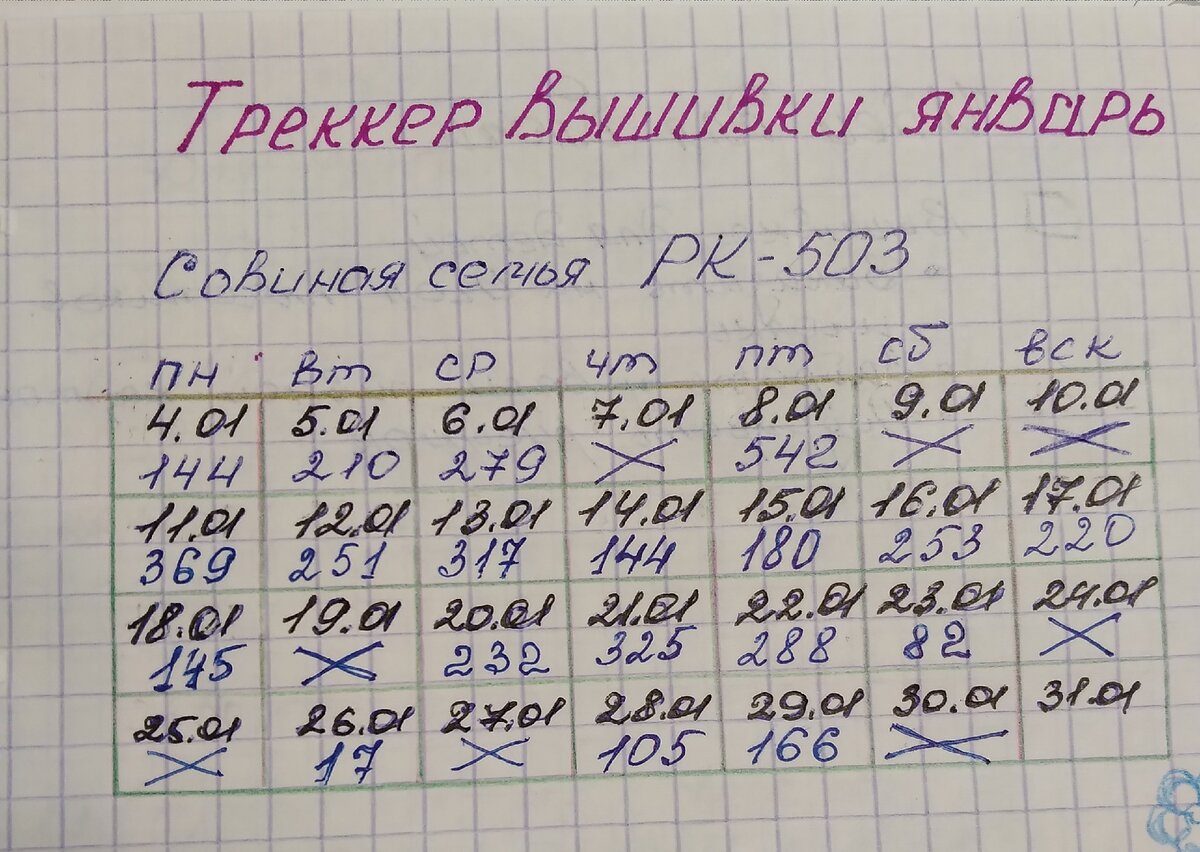 Треккер вышивки январь
Совиная семья РК-503
пн вт ср чт пт сб вск
4.01 5.01 6.01 7.01 8.01 9.01 10.01
144 210 279 X 542 X X
11.01 12.01 13.01 14.01 15.01 16.01 17.01
369 251 317 144 180 253 220
18.01 19.01 20.01 21.01 22.01 23.01 24.01
145 X 232 325 288 82 X
25.01 26.01 27.01 28.01 29.01 30.01 31.01
X 17 X 105 166 X